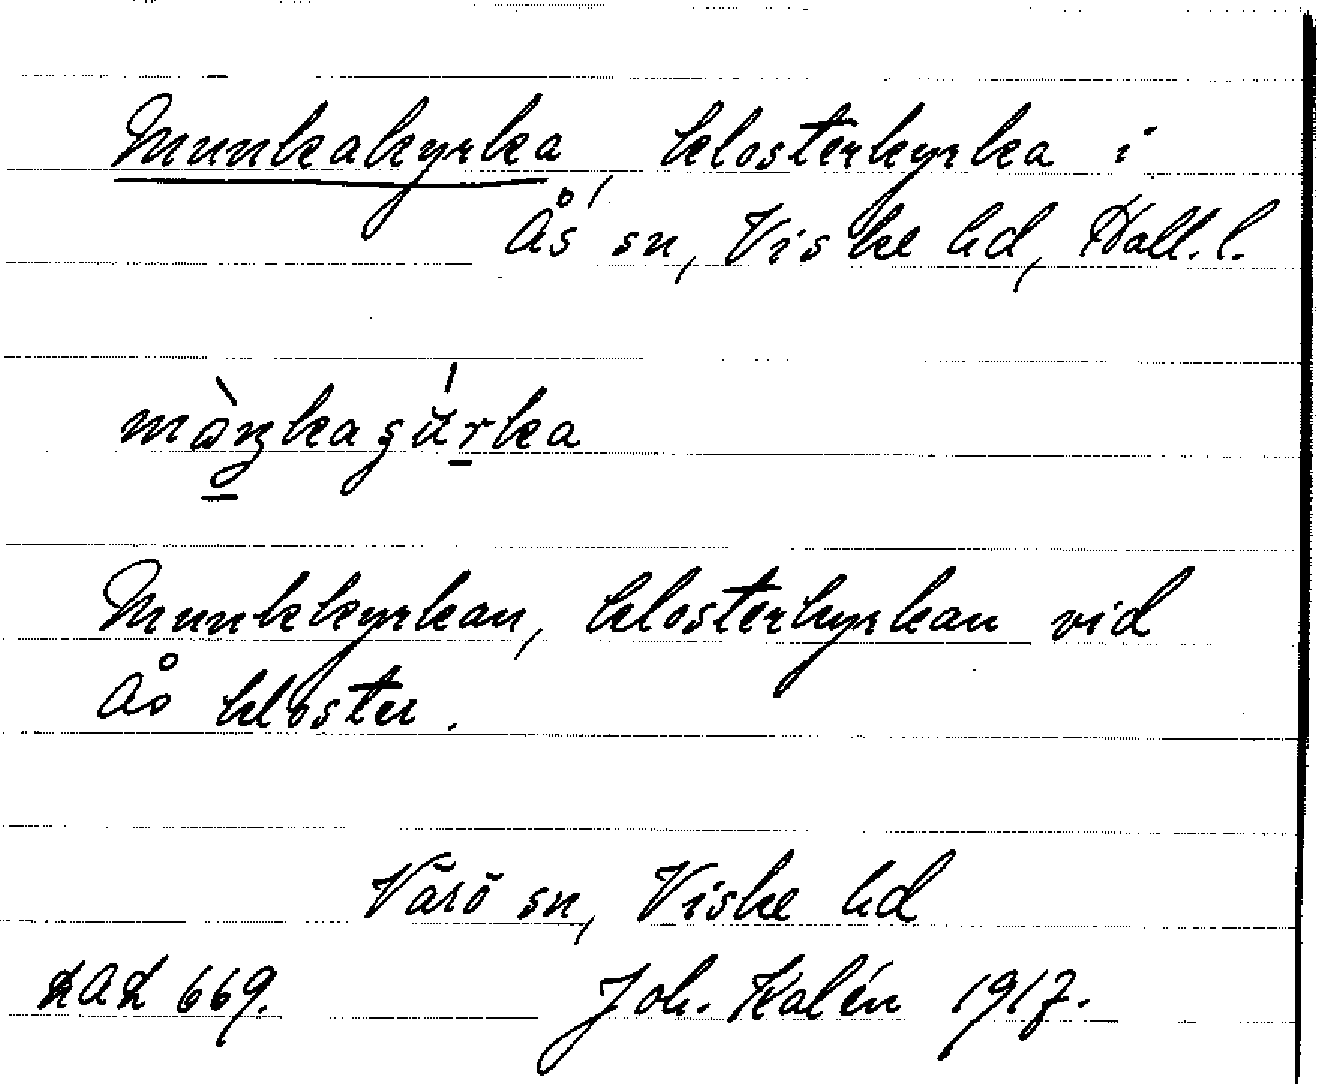 Munkakyrka, klosterkyrka i
Ås sn, Viske hd, Hall. l.
Munkkyrkan, klosterkyrkan vid
Ås kloster.
Värö sn, Viske hd
LAL 669. Joh. Kalén 1917.